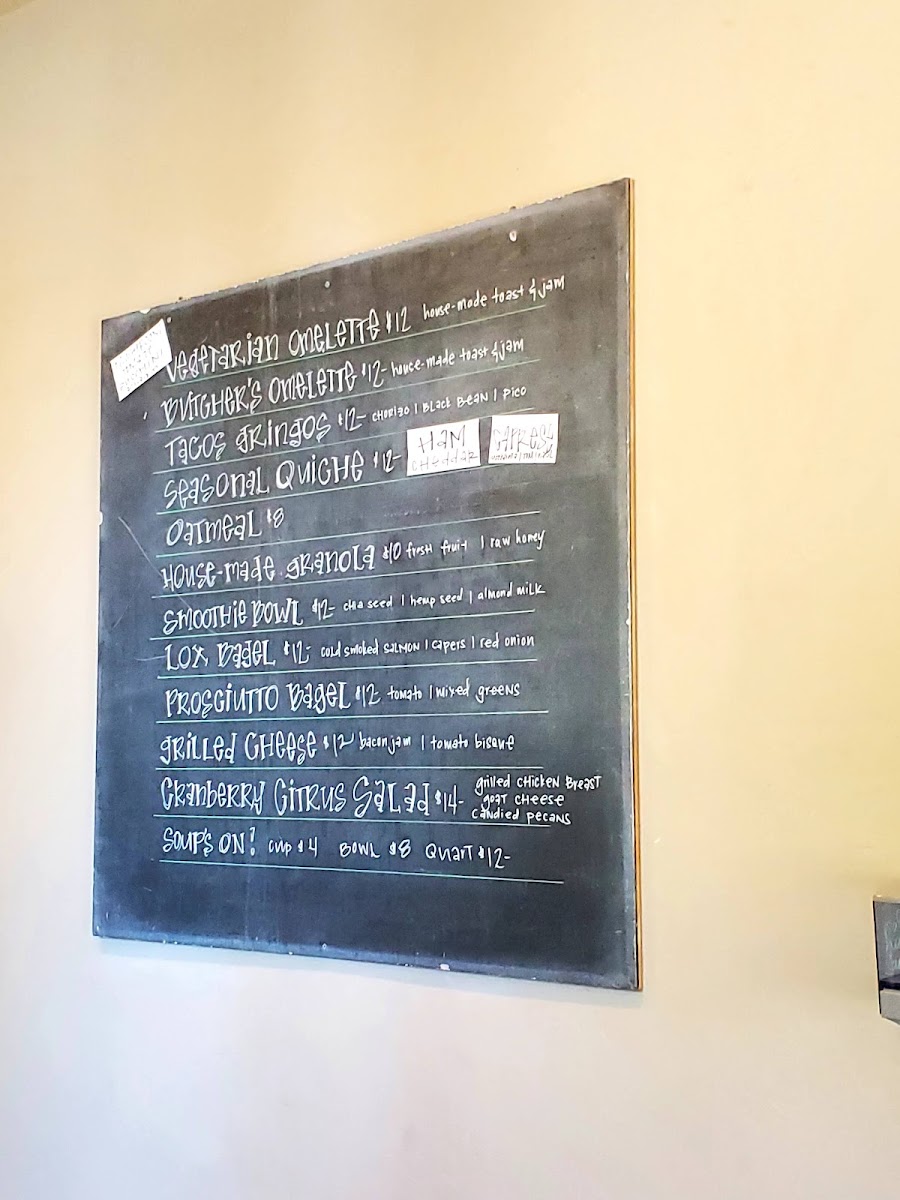 Vegetarian Omelette $12 house-made toast & jam
Butcher's Omelette $12- house-made toast & jam
Tacos Gringos $12- chorizo | black bean | pico
Seasonal Quiche $12- Ham Cheddar
Oatmeal $8
House-made granola $10 fresh fruit | raw honey
Smoothie Bowl $12- chia seed | hemp seed | almond milk
Lox Bagel $12- cold smoked salmon | capers | red onion
Prosciutto Bagel $12 tomato | mixed greens
Grilled Cheese $12 bacon jam | tomato bisque
Cranberry Citrus Salad $14- grilled chicken breast
goat cheese
candied pecans
Soup's on! cup $4 Bowl $8 Quart $12-